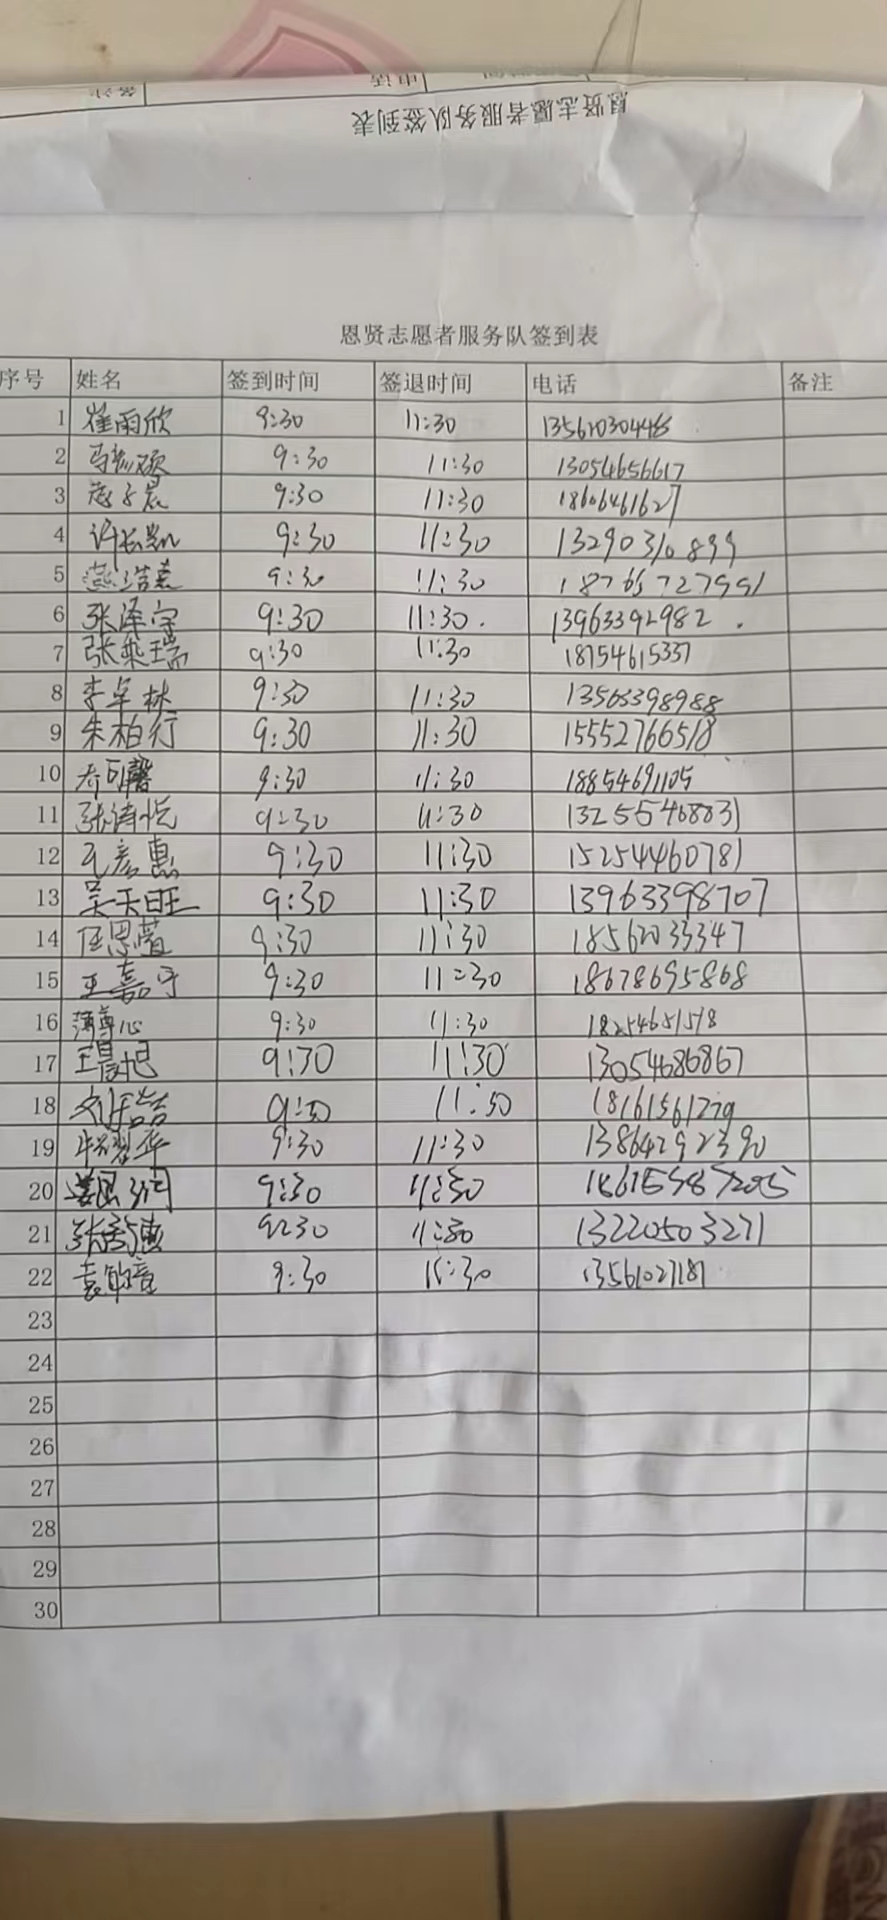 恩贤志愿者服务队签到表
恩贤志愿者服务队签到表
序号 姓名 签到时间 签退时间 电话 备注
1 崔雨欣 9:30 11:30
2 9:30 11:30 13054656617
3 9:30 11:30 18606461627
4 9:30 11:30 13290310899
5 9:30 11:30 18765727991
6 张泽宇 9:30 11:30. 13963392982.
7 张燊瑞 9:30 11:30 18754615337
8 李卓林 9:30 11:30 13563398988
9 朱柏行 9:30 11:30 15552766518
10 9:30 11:30 18854691105
11 张诗悦 9:30 11:30 13255546883
12 孔彦惠 9:30 11:30 15254460781
13 吴天旺 9:30 11:30 13963398707
14 任思萱 9:30 11:30 18562033347
15 王嘉宁 9:30 11:30 18678695868
16 9:30 11:30 18254651518
17 王晨旭 9:30 11:30 13054686867
18 9:30 11:30 18161561279
19 9:30 11:30 13864292390
20 9:30 11:30
21 9:30 11:30 13220503271
22 9:30 11:30 13561027187
23
24
25
26
27
28
29
30